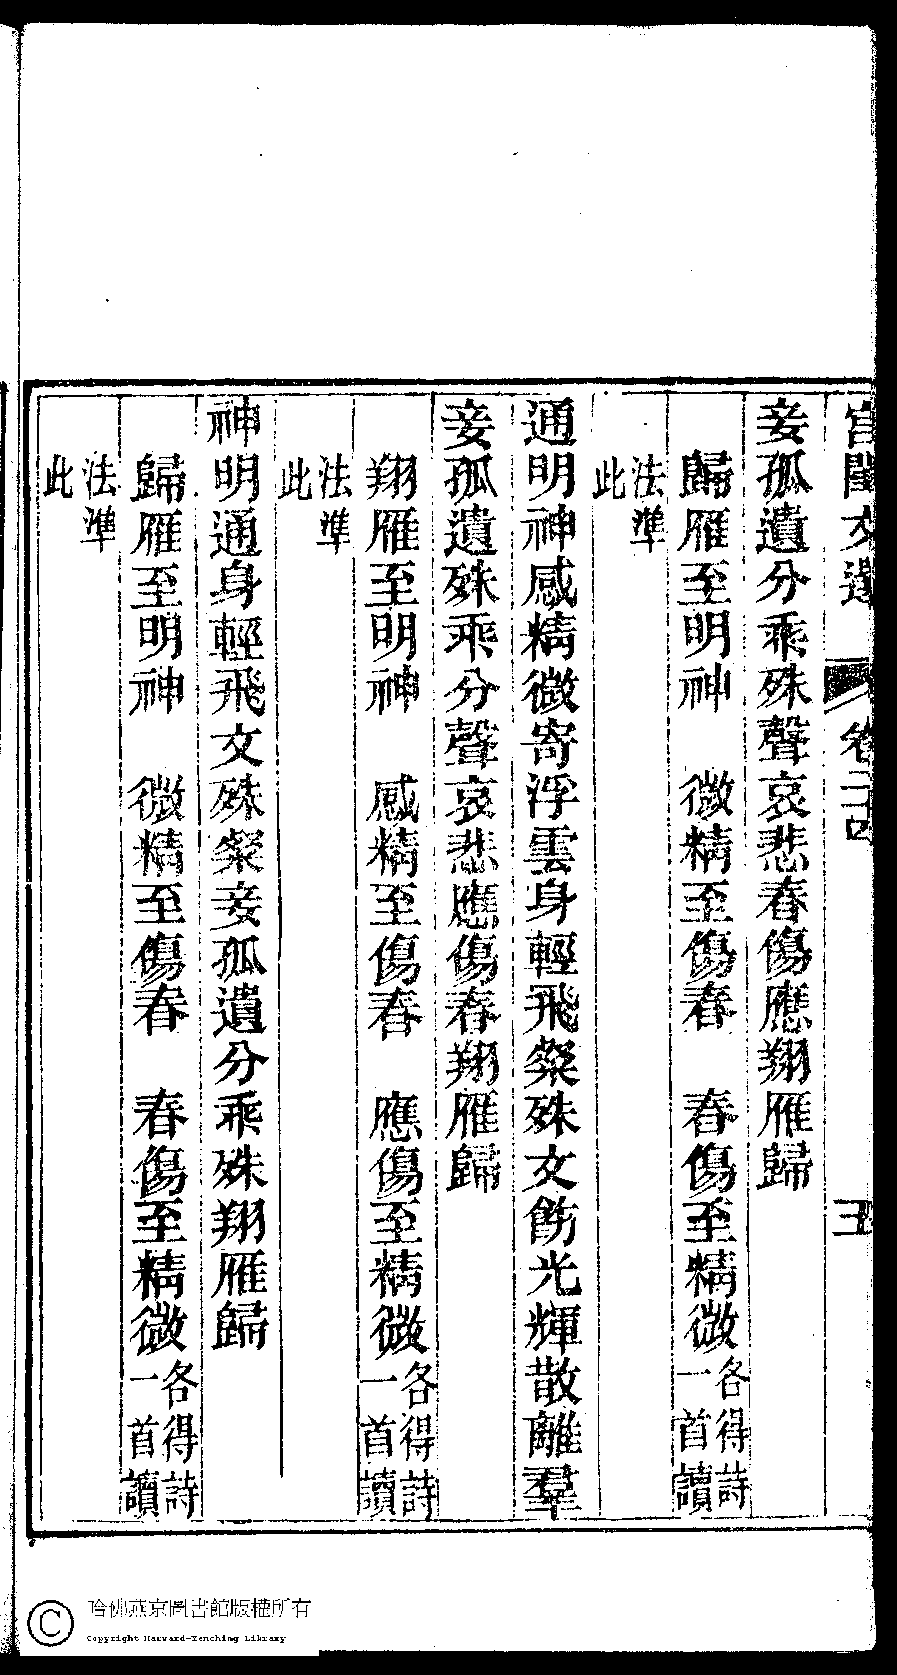 宮閨文選 卷二十四 五
妾孤遺分乖殊聲哀悲春傷應翔雁歸
歸雁至明神 微精至傷春 春傷至精微各得詩一首讀
法準此
通明神感精微寄浮雲身輕飛粲殊文飭光輝散離羣
妾孤遺殊乖分聲哀悲應傷春翔雁歸
翔雁至明神 感精至傷春 應傷至精微各得詩一首讀
法準此
神明通身輕飛文殊粲妾孤遺分乖殊翔雁歸
歸雁至明神 微精至傷春 春傷至精微各得詩一首讀
法準此
哈佛燕京圖書館版權所有
Copyright Harvard-Yenching Library